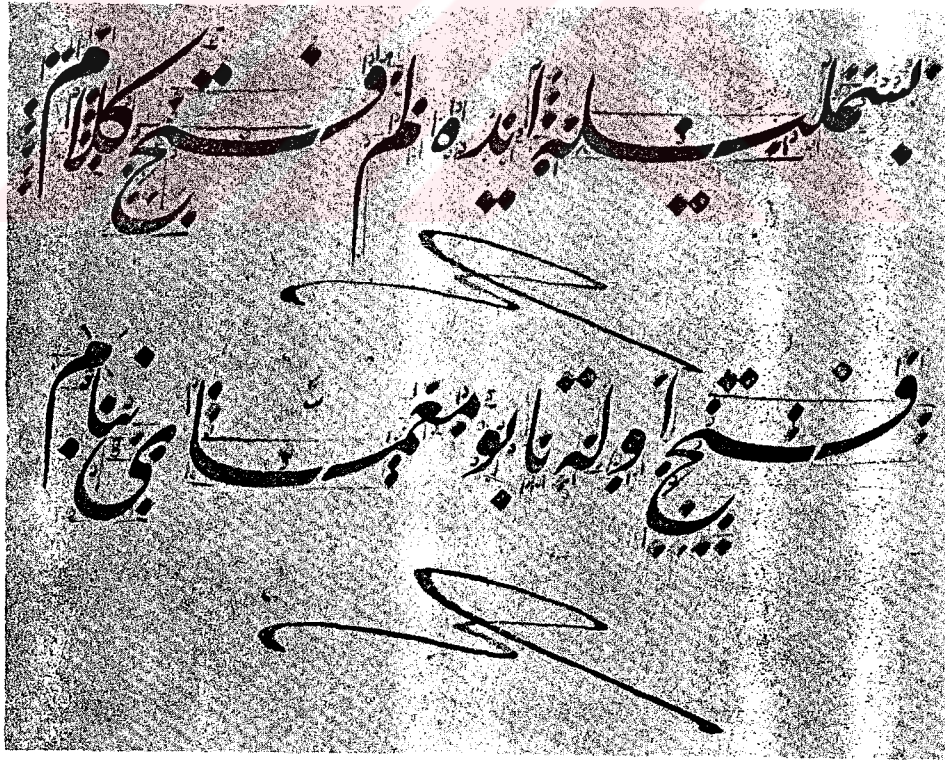 بسمليله ايده لم فتح كلام
فتح اوله تا بو معماى بنام